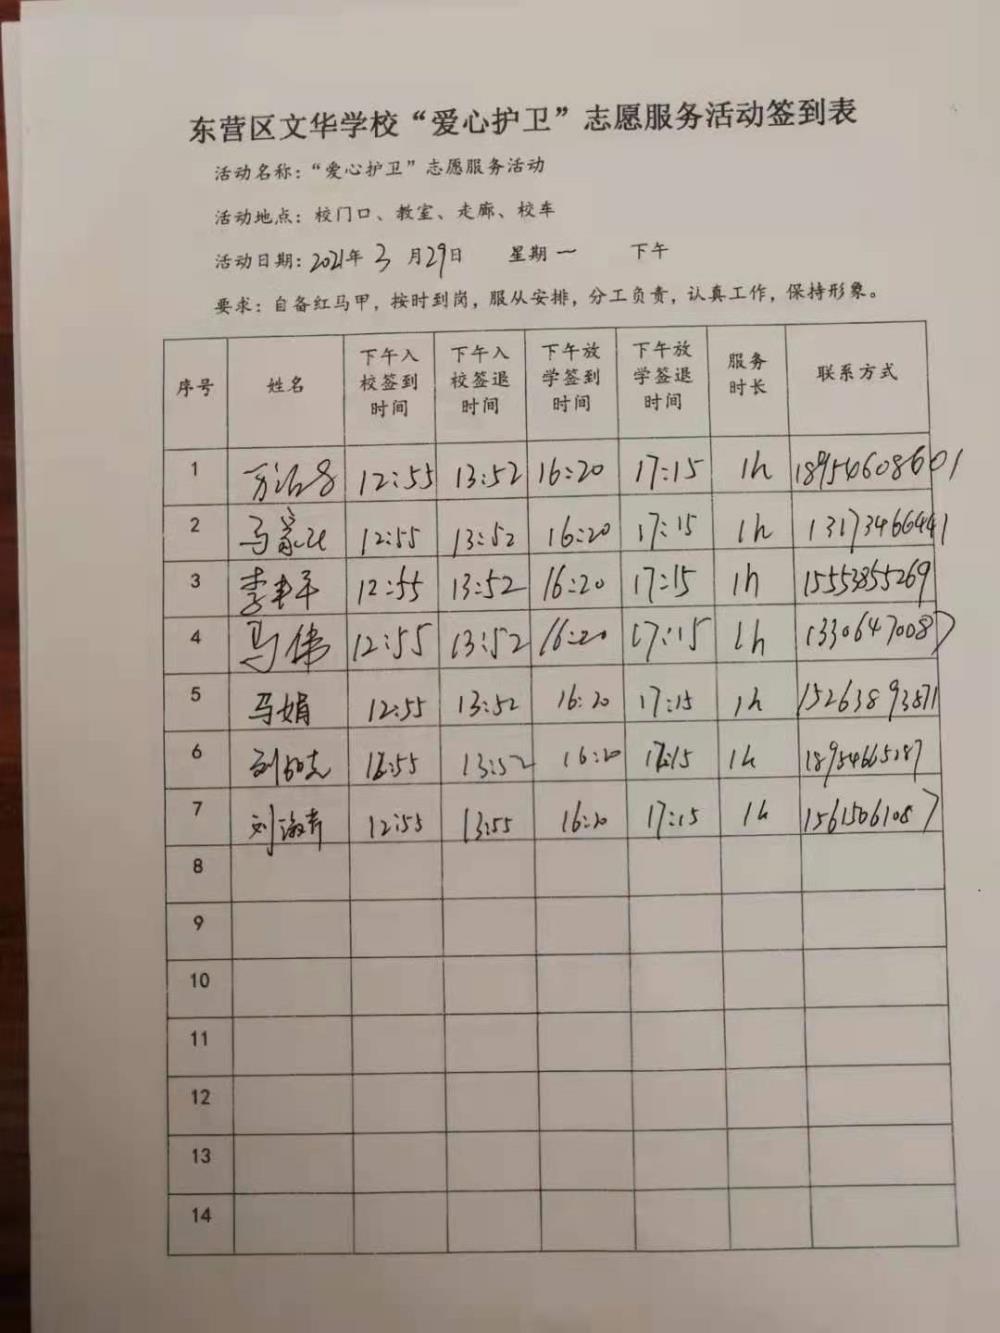 东营区文华学校“爱心护卫”志愿服务活动签到表
活动名称：“爱心护卫”志愿服务活动
活动地点：校门口、教室、走廊、校车
活动日期：2021年 3 月29日 星期一 下午
要求：自备红马甲，按时到岗，服从安排，分工负责，认真工作，保持形象。
序号 姓名 下午入校签到时间 下午入校签退时间 下午放学签到时间 下午放学签退时间 服务时长 联系方式
1 12:55 13:52 16:20 17:15 1h 18954608601
2 马 12:55 13:52 16:20 17:15 1h 13173466441
3 李 12:55 13:52 16:20 17:15 1h 15553855269
4 马伟 12:55 13:52 16:20 17:15 1h 13306470087
5 马娟 12:55 13:52 16:20 17:15 1h 15263893871
6 刘 12:55 13:52 16:20 17:15 1h
7 刘 12:55 13:55 16:20 17:15 1h 15615061087
8
9
10
11
12
13
14